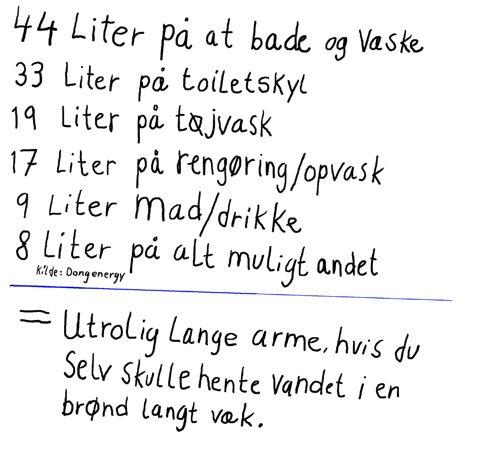 44 Liter på at bade og Vaske
33 Liter på toiletskyl
19 Liter på tøjvask
17 Liter på rengøring/opvask
9 Liter mad/drikke
8 Liter på alt muligt andet
Kilde: Dongenergy
= Utrolig Lange arme, hvis du
Selv Skulle hente Vandet i en
brønd langt væk.